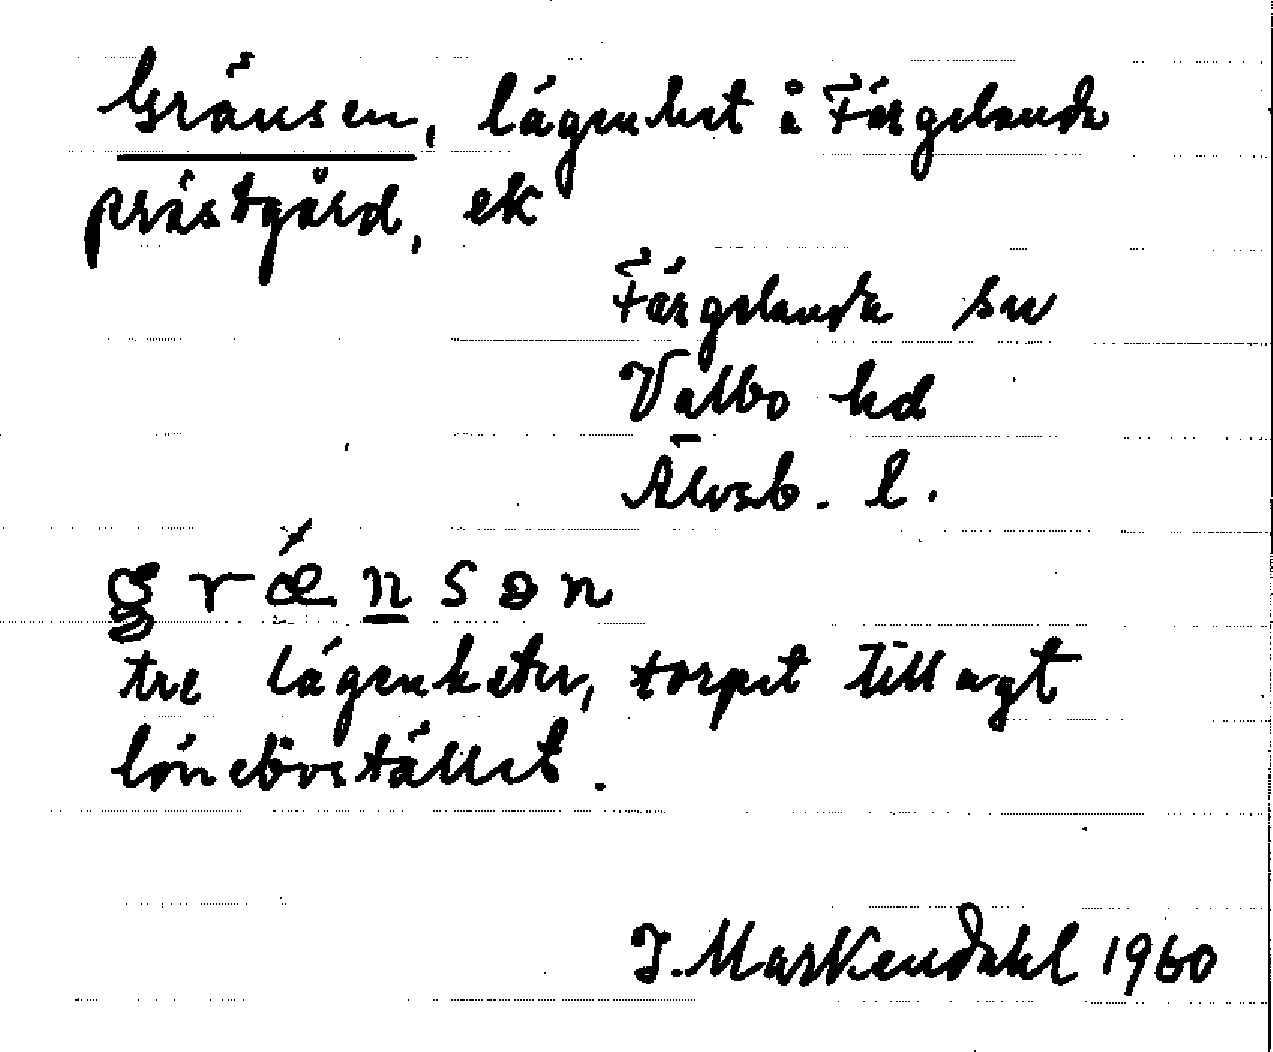 Gränsen, lägenhet å Färgelanda
prästgård, ek
Färgelanda sn
Valbo hd
Älvsb. l.
grǽnsən
tre lägenheter, torpet tillagt
lönebostället.
I. Markendahl 1960